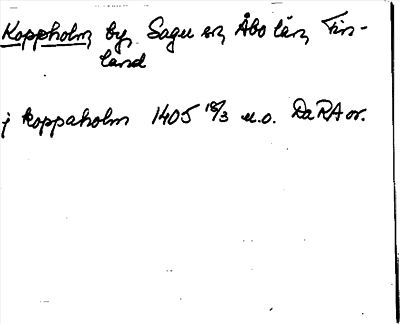 Koppholm, by, Sagu sn, Åbo län, Fin-
land
j koppaholm 1405 18/3 u.o. DaRA or.